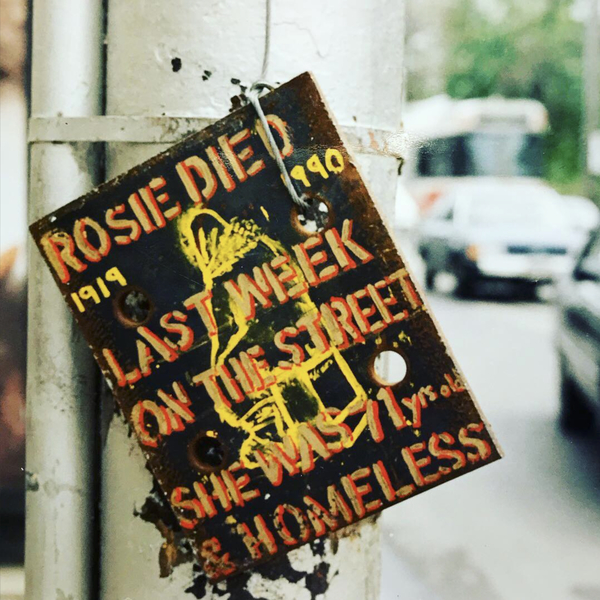 ROSIE DIED
1919
1990
LAST WEEK
ON THE STREET
SHE WAS 71 yrs old
& HOMELESS